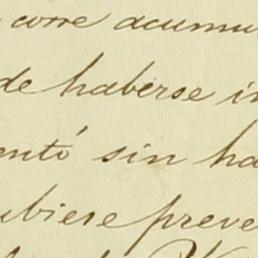 corre acumu
de haberse in
entó sin ha
ubiere preve